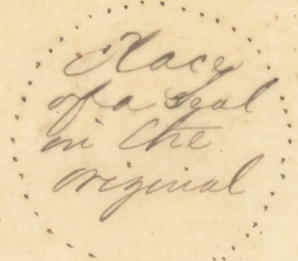 Place
of a Seal
in the
original